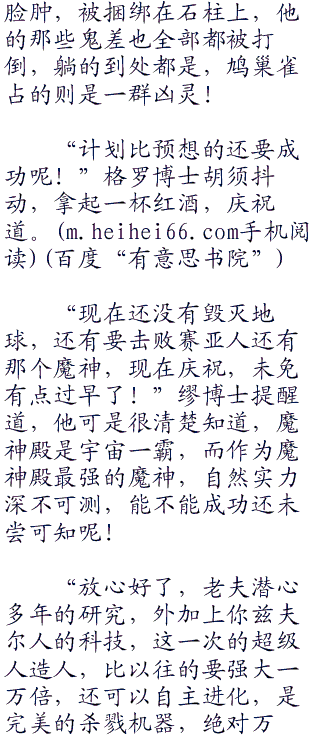 脸肿，被捆绑在石柱上，他
的那些鬼差也全部都被打
倒，躺的到处都是，鸠巢雀
占的则是一群凶灵！
“计划比预想的还要成
功呢！”格罗博士胡须抖
动，拿起一杯红酒，庆祝
道。(m.heihei66.com手机阅
读)(百度“有意思书院”)
“现在还没有毁灭地
球，还有要击败赛亚人还有
那个魔神，现在庆祝，未免
有点过早了！”缪博士提醒
道，他可是很清楚知道，魔
神殿是宇宙一霸，而作为魔
神殿最强的魔神，自然实力
深不可测，能不能成功还未
尝可知呢！
“放心好了，老夫潜心
多年的研究，外加上你兹夫
尔人的科技，这一次的超级
人造人，比以往的要强大一
万倍，还可以自主进化，是
完美的杀戮机器，绝对万